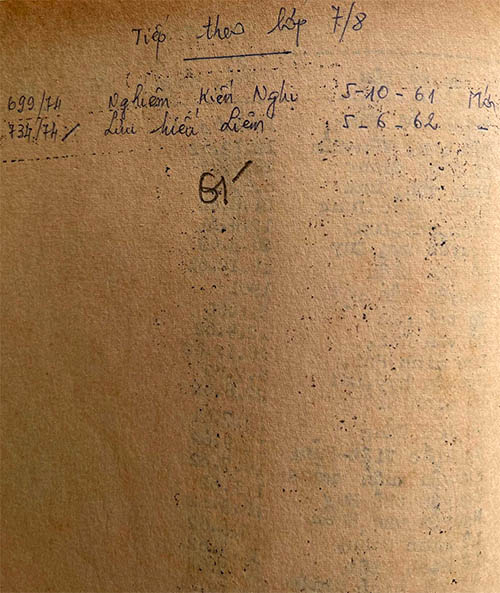 Tiếp theo lớp 7/8
699/74 Nghiêm Kiến Nghị 5-10-61
734/74 Lưu hiếu Liêm 5-6-62 -
61